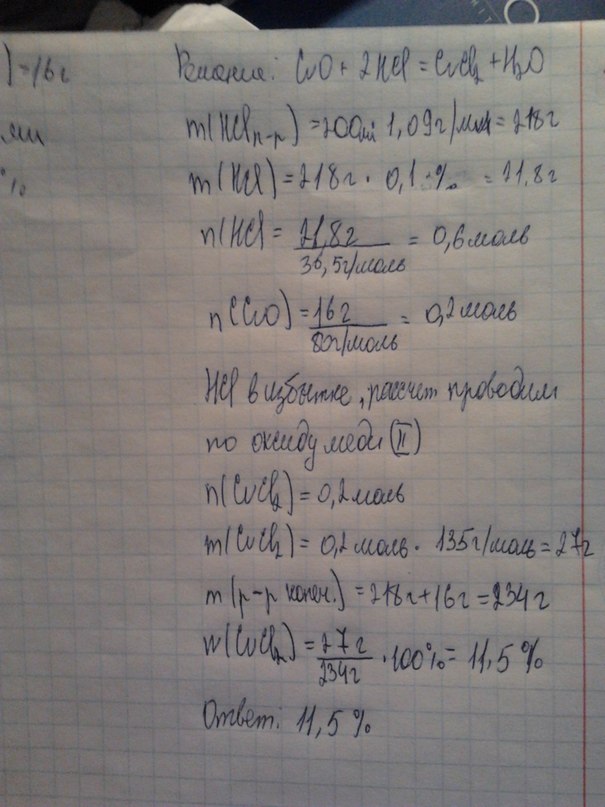 ) = 16г
Решение: CuO + 2HCl = CuCl₂ + H₂O
m(HCl р-р) = 200мл 1,09г/мл = 218г
m(HCl) = 218г · 0,1 % = 21,8г
%
n(HCl = 21,8г / 36,5г/моль = 0,6моль
n(CuO) = 16г / 80г/моль = 0,2моль
HCl в избытке, рассчет проводим
по оксиду меди (II)
n(CuCl₂) = 0,2моль
m(CuCl₂) = 0,2моль · 135г/моль = 27г
m(р-р конеч.) = 218г + 16г = 234г
w(CuCl₂) = 27г / 234г · 100% = 11,5 %
Ответ: 11,5 %